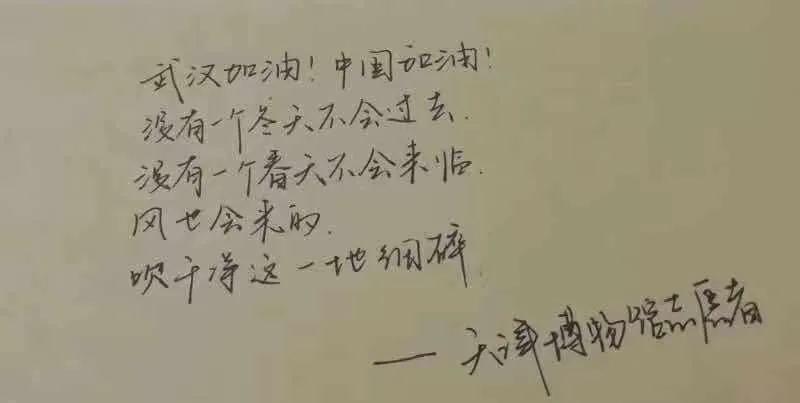 武汉加油！中国加油！
没有一个冬天不会过去.
没有一个春天不会来临.
风也会来的.
吹干净这一地细碎.
——天津博物馆志愿者